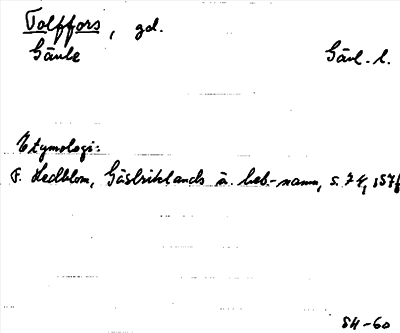 Tolffors, gd.
Gävle Gävl. l.
Etymologi:
F. Hedblom, Gästriklands ä. beb.-namn, s. 74, 157f
SH-60